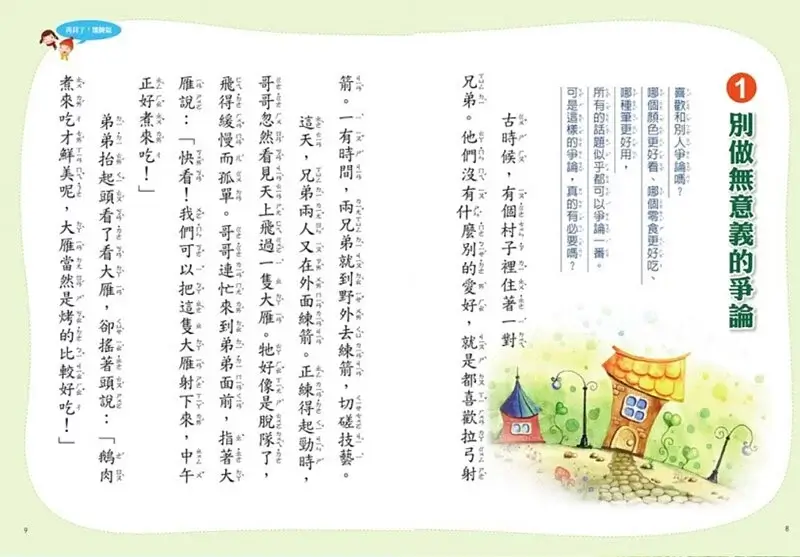 1
別做無意義的爭論
喜歡和別人爭論嗎？
哪個顏色更好看、哪個零食更好吃、
哪種筆更好用，
所有的話題似乎都可以爭論一番。
可是這樣的爭論，真的有必要嗎？
古時候，有個村子裡住著一對
兄弟。他們沒有什麼別的愛好，就是都喜歡拉弓射
8
箭。一有時間，兩兄弟就到野外去練箭，切磋技藝。
這天，兄弟兩人又在外面練箭。正練得起勁時，
哥哥忽然看見天上飛過一隻大雁。牠好像是脫隊了，
飛得緩慢而孤單。哥哥連忙來到弟弟面前，指著大
雁說：「快看！我們可以把這隻大雁射下來，中午
正好煮來吃！」
弟弟抬起頭看了看大雁，卻搖著頭說：「鵝肉
煮來吃才鮮美呢，大雁當然是烤的比較好吃！」
9